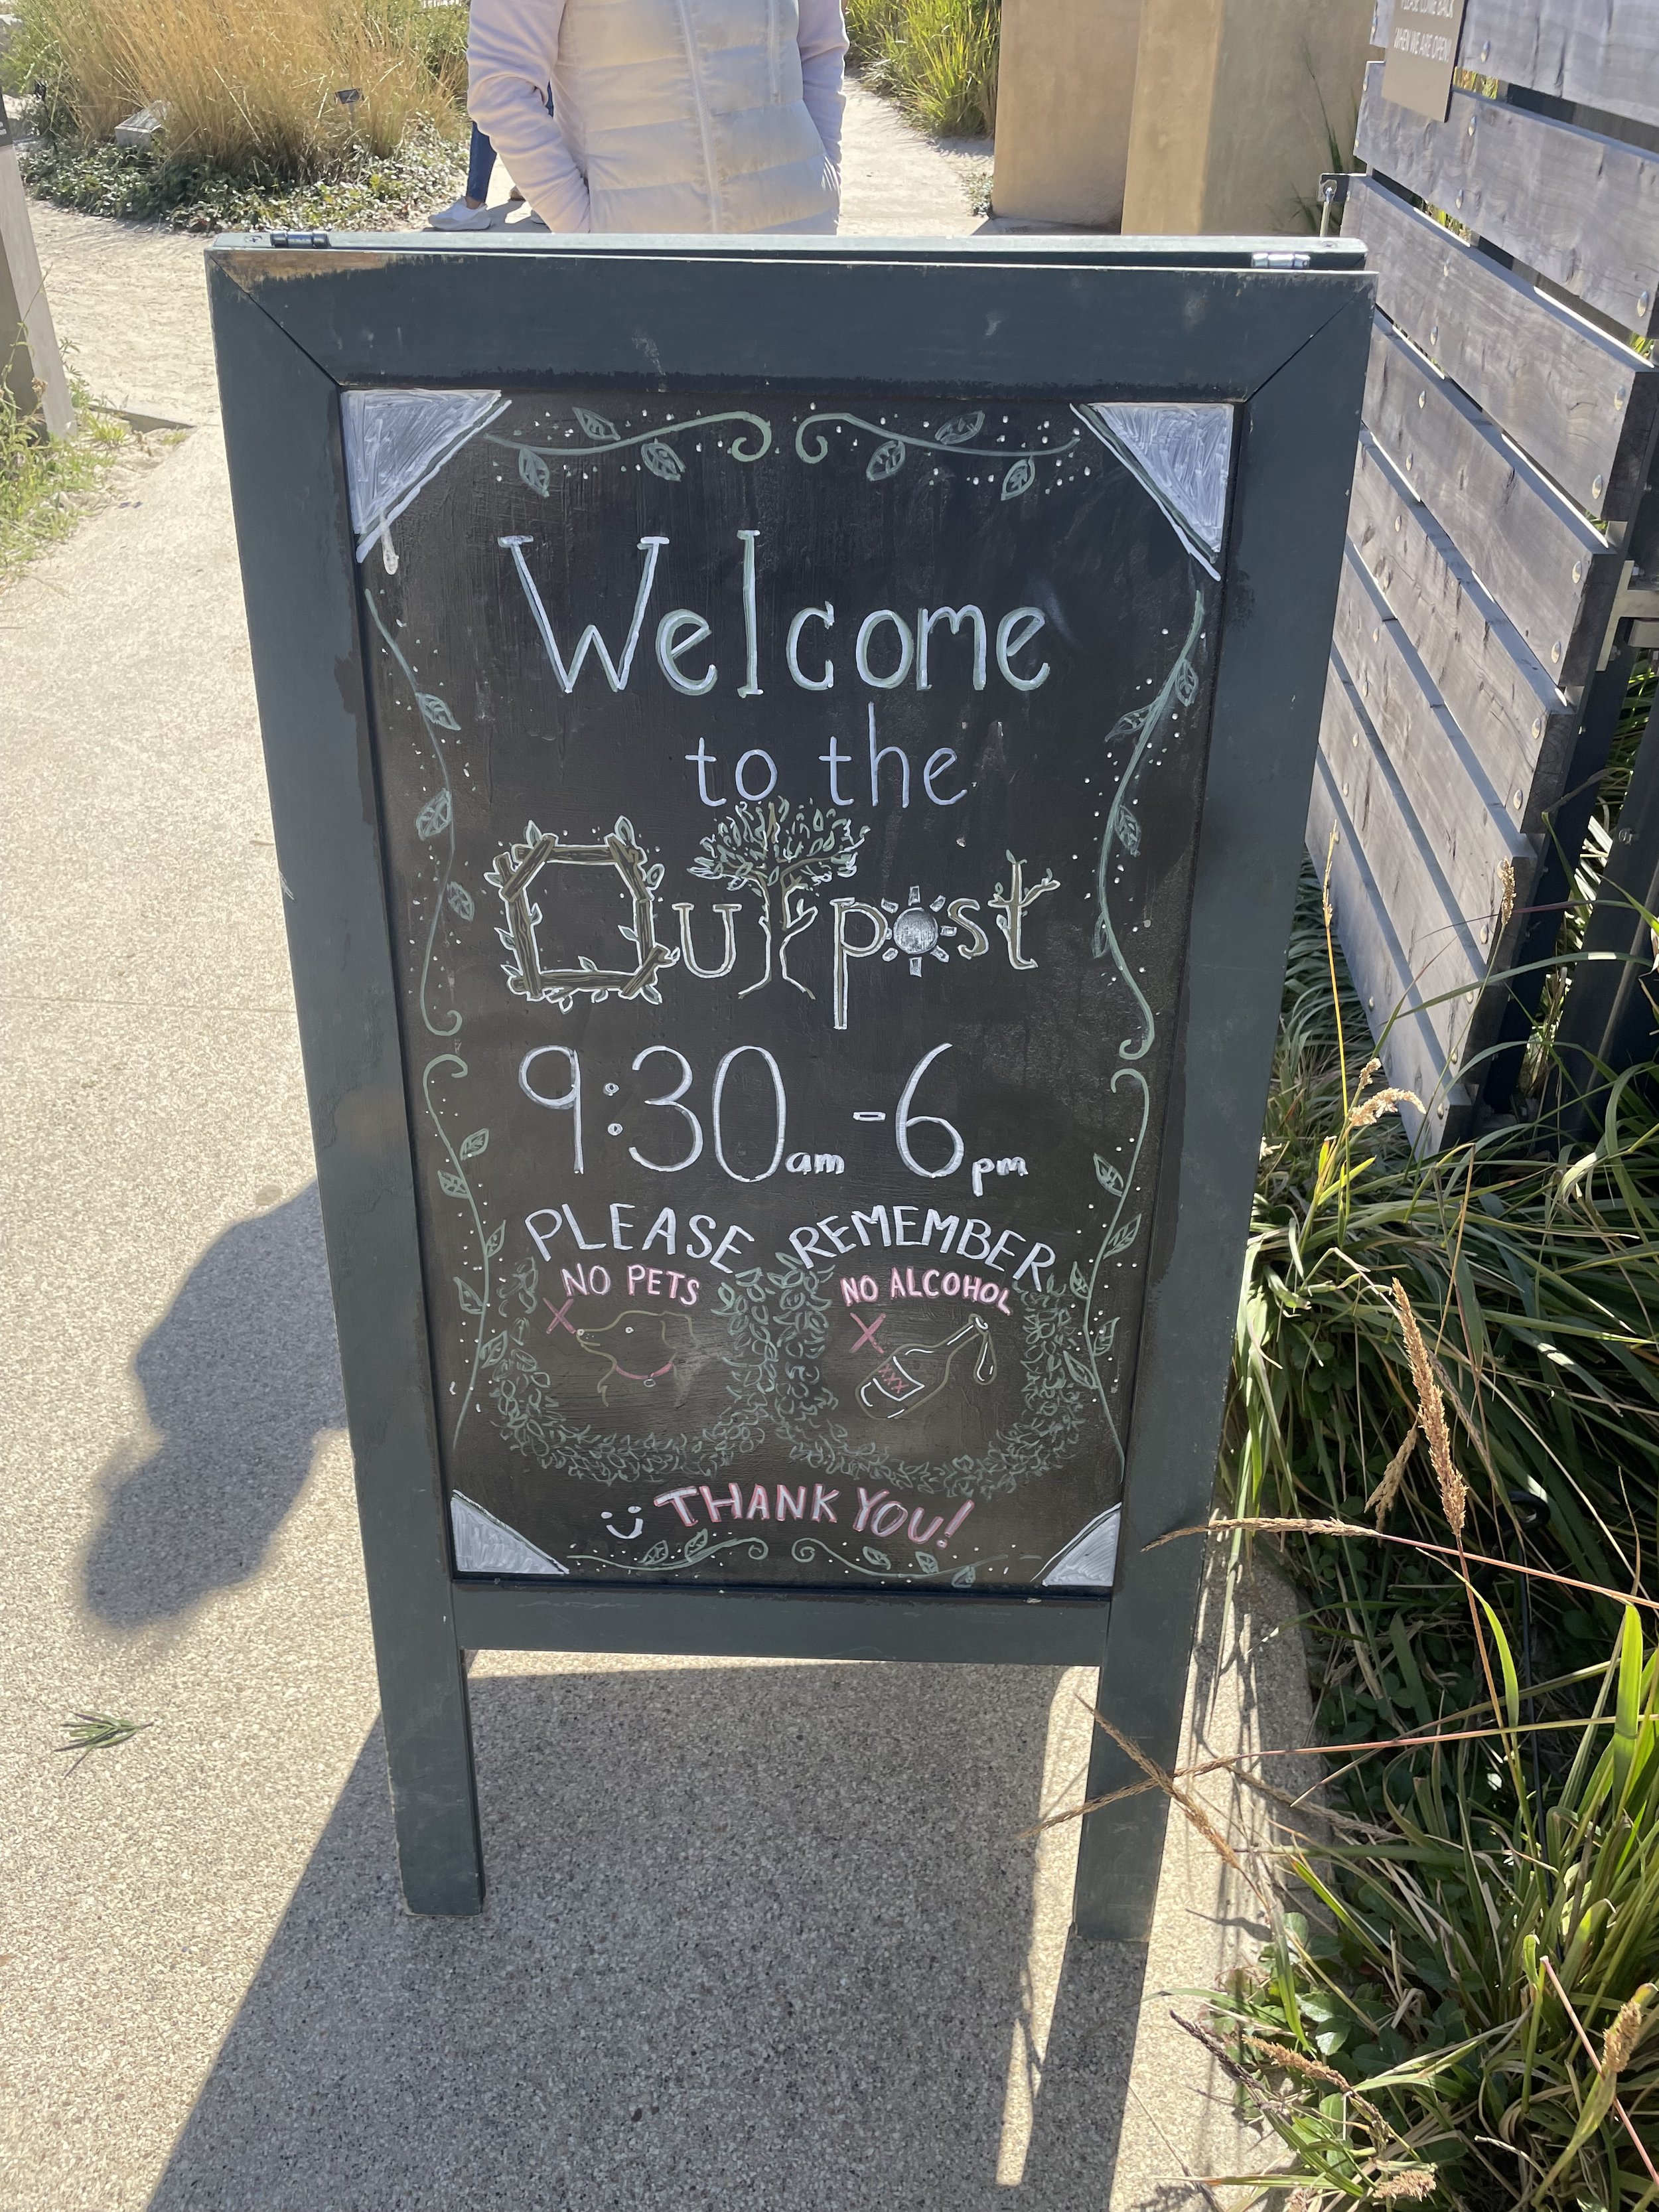 PLEASE COME BACK
WHEN WE ARE OPEN!
Welcome
to the
Outpost
9:30am - 6pm
PLEASE REMEMBER
NO PETS
NO ALCOHOL
XXX
THANK YOU!